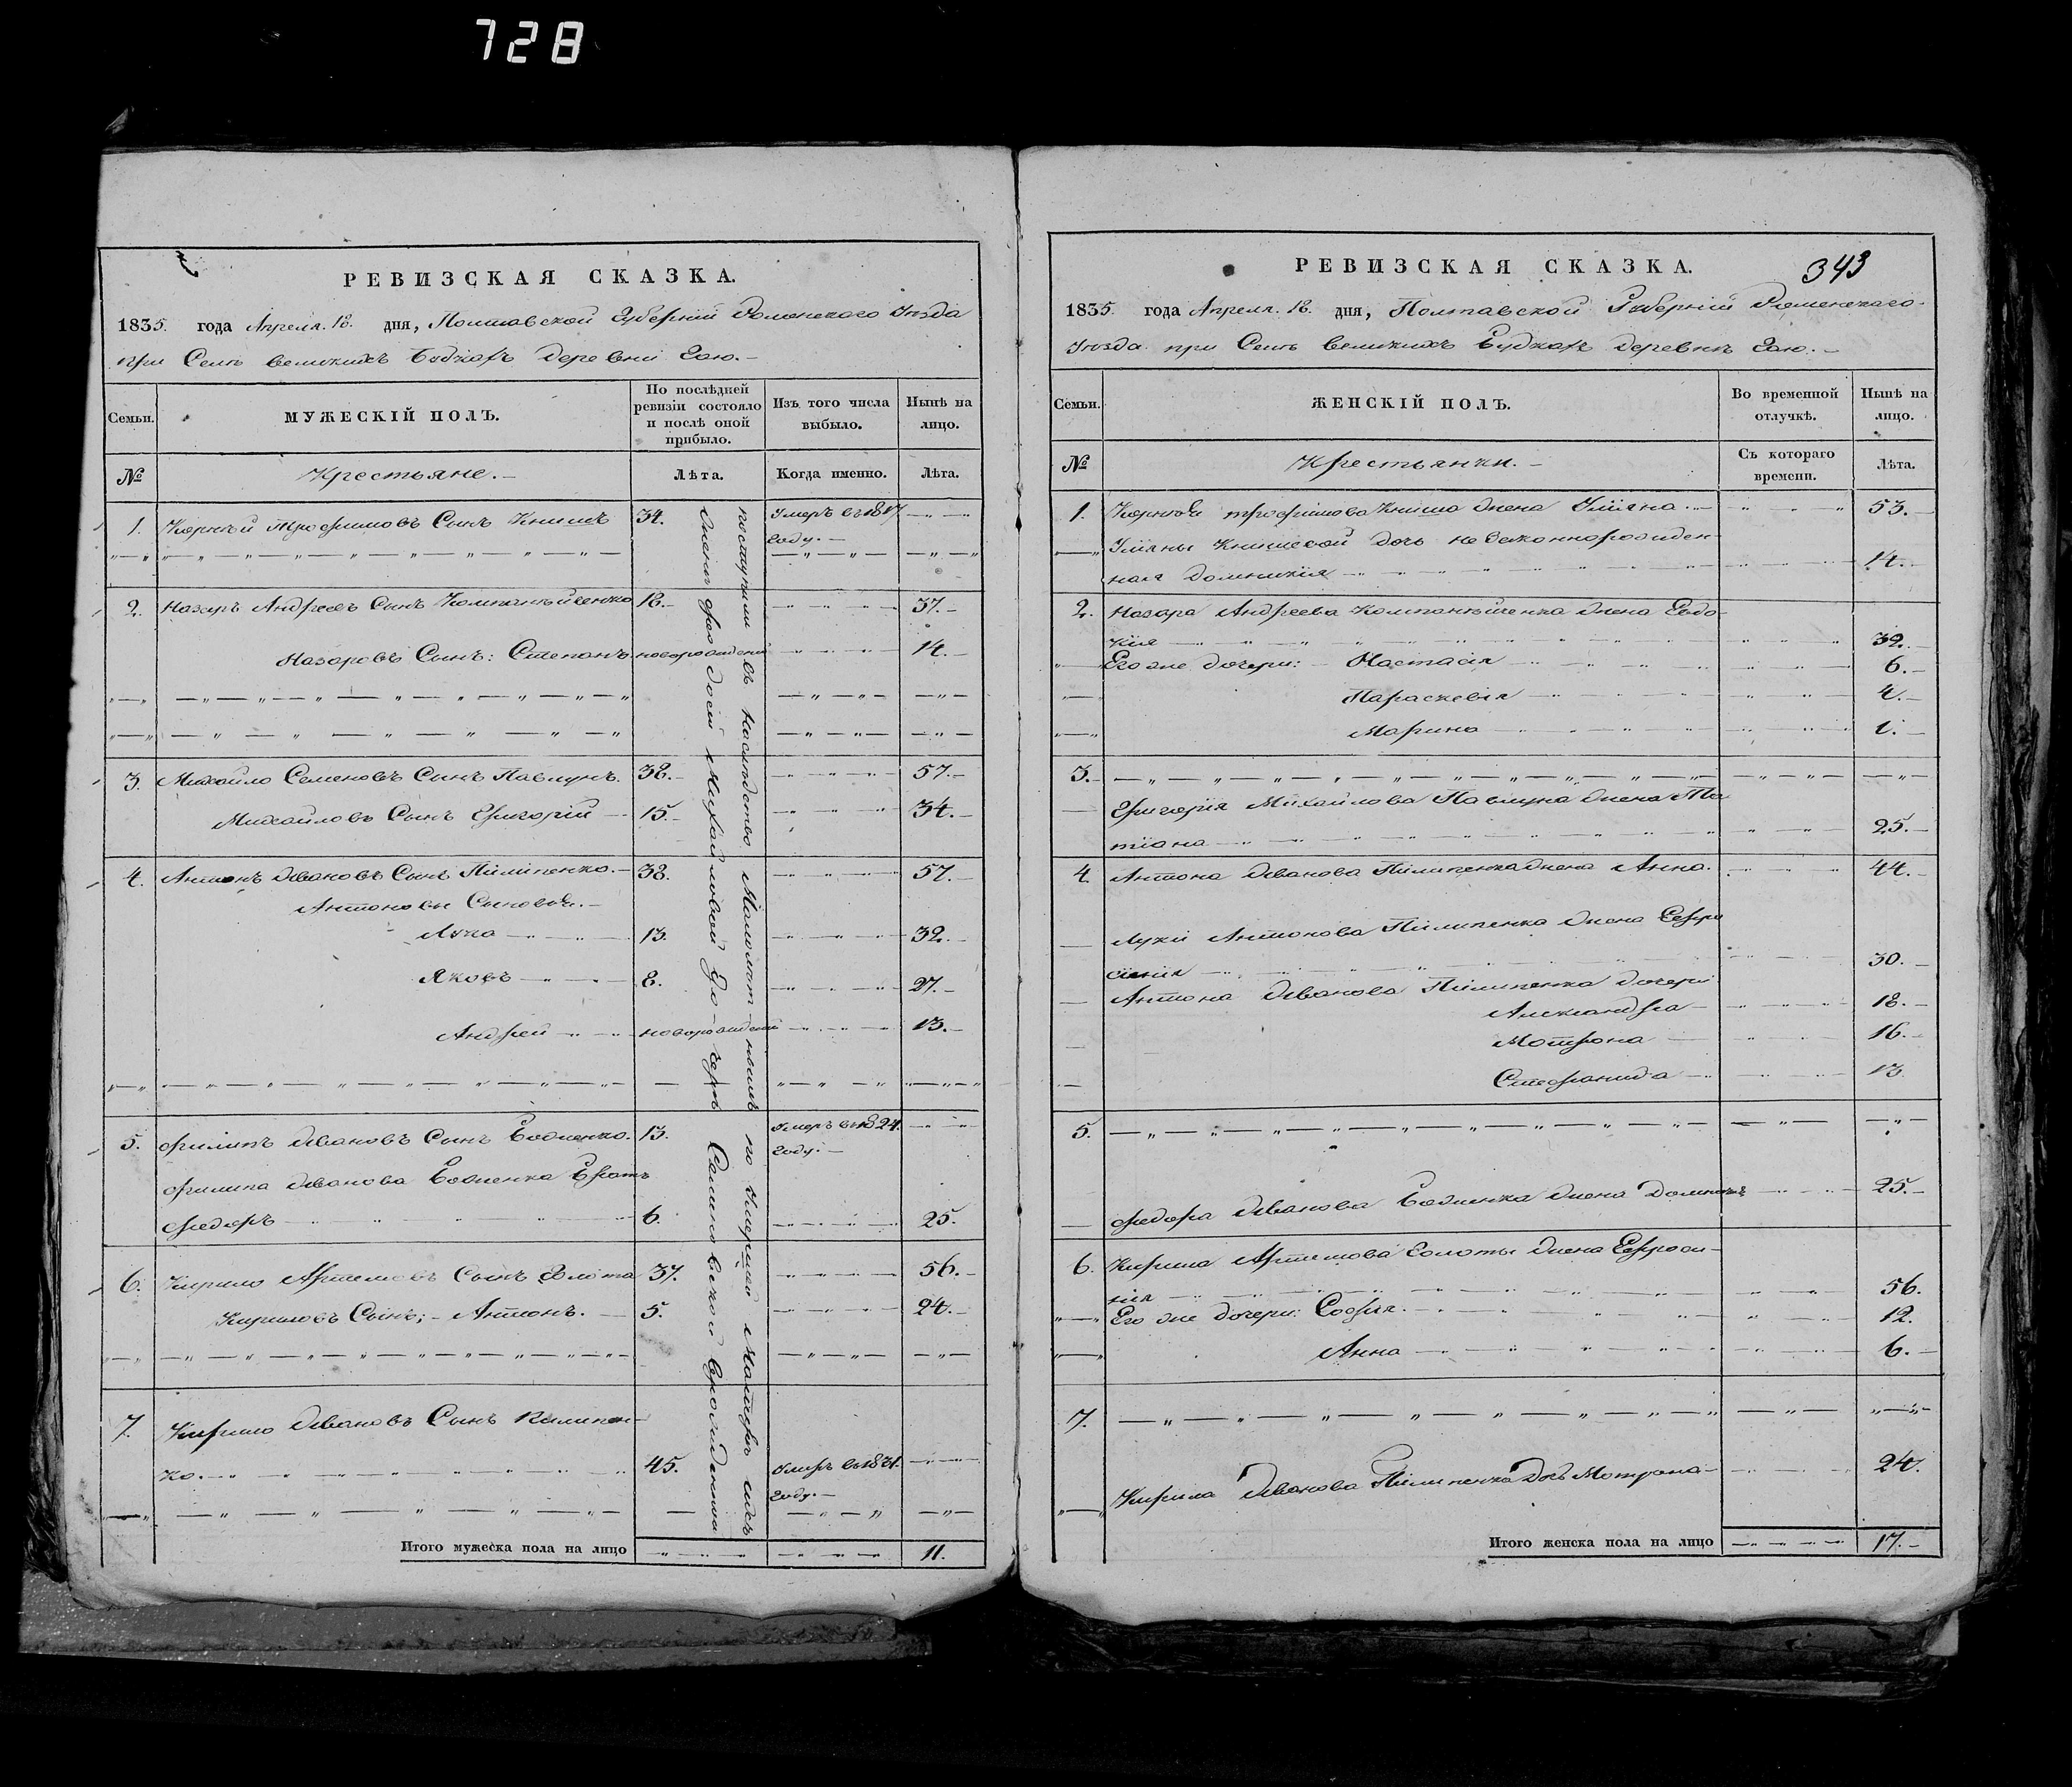 728
РЕВИЗСКАЯ СКАЗКА.
1835. года Апреля. 18. дня, Полтавской Губерній Роменского Уѣзда
при Селѣ великихъ Будкахъ деревни Гаю.
Семьи.
МУЖЕСКІЙ ПОЛЪ.
По послѣдней ревизіи состояло и послѣ оной прибыло.
Изъ того числа выбыло.
Нынѣ на лицо.
№
Крестьяне.
Лѣта.
Когда именно.
Лѣта.
1. Корнѣй Трофимовъ Сынъ Книшъ 34. Умеръ въ 1817
году.
2. Назаръ Андреевъ Сынъ Компанѣйченко 18. 37.
Назаровъ Сынъ: Степанъ новорожденій 14.
3. Михайло Семеновъ Сынъ Павлунъ. 38. 57.
Михайловъ Сынъ Григорій 15. 34.
4. Антонъ Ивановъ Сынъ Пилипенко. 38. 57.
Антоновы Сыновья.
Лука 13. 32.
Яковъ 8. 27.
Андрей новорожденій 13.
5. Филипъ Ивановъ Сынъ Бодненко. 13. Умеръ въ 1824.
году.
Филипа Иванова Бодненка Братъ
Федоръ 6. 25.
6. Кирило Артемовъ Сынъ Золота 37. 56.
Кириловъ Сынъ; Антонъ. 5. 24.
7. Кирило Ивановъ Сынъ Пилипен-
ко. 45. Умеръ въ 1831.
году.
поступили въ наслѣдство Малолѣтнымъ по умершей матери ихъ
Михайловой Дочерѣ
Итого мужеска пола на лицо 11.
РЕВИЗСКАЯ СКАЗКА.
343
1835. года Апреля. 18. дня, Полтавской Губерній Роменскаго
Уѣзда при Селѣ великихъ Будкахъ деревнѣ Гаю.
Семьи.
ЖЕНСКІЙ ПОЛЪ.
Во временной отлучкѣ.
Нынѣ на лицо.
№
Крестьянки.
Съ котораго времени.
Лѣта.
1. Корнѣя трофимова Книша жена Уліяна. 53.
Уліяны Книшевой дочь незаконнорожден-
ная Домникія 14.
2. Назара Андреева Компанѣйченка жена Евдо-
кія 32.
Его же дочери: Настасія 6.
Параскевія 4.
Марина 1.
3.
Григорія Михайлова Павлуна жена Та-
тіана 25.
4. Антона Иванова Пилипенка жена Анна. 44.
Луки Антонова Пилипенка жена Ефро
синія 30.
Антона Иванова Пилипенка дочери
Александра 18.
Мотрона 16.
Стефанида 13.
5.
Федора Иванова Бодненка жена Домникія 25.
6. Кирила Артемова Золоты жена Ефроси-
нія 56.
Его же дочери: Софія. 12.
Анна 6.
7.
Кирила Иванова Пилипенка Дочь Мотрона 24.
Итого женска пола на лицо 17.